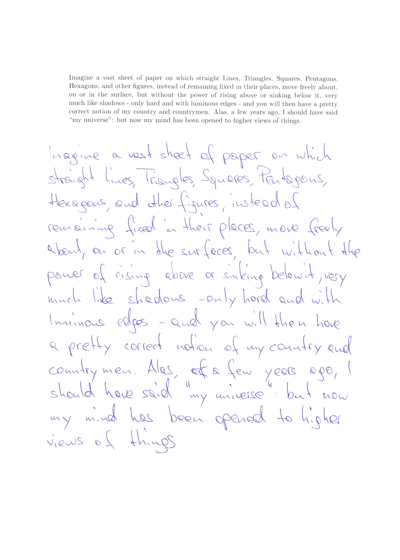 Imagine a vast sheet of paper on which straight Lines, Triangles, Squares, Pentagons,
Hexagons, and other figures, instead of remaining fixed in their places, move freely about,
on or in the surface, but without the power of rising above or sinking below it, very
much like shadows - only hard and with luminous edges - and you will then have a pretty
correct notion of my country and countrymen. Alas, a few years ago, I should have said
"my universe": but now my mind has been opened to higher views of things.
Imagine a vast sheet of paper on which
straight Lines, Triangles, Squares, Pentagons,
Hexagons, and other figures, instead of
remaining fixed in their places, move freely
about, on or in the surfaces, but without the
power of rising above or sinking below it, very
much like shadows - only hard and with
luminous edges - and you will then have
a pretty correct notion of my country and
countrymen. Alas, a few years ago, I
should have said "my universe": but now
my mind has been opened to higher
views of things